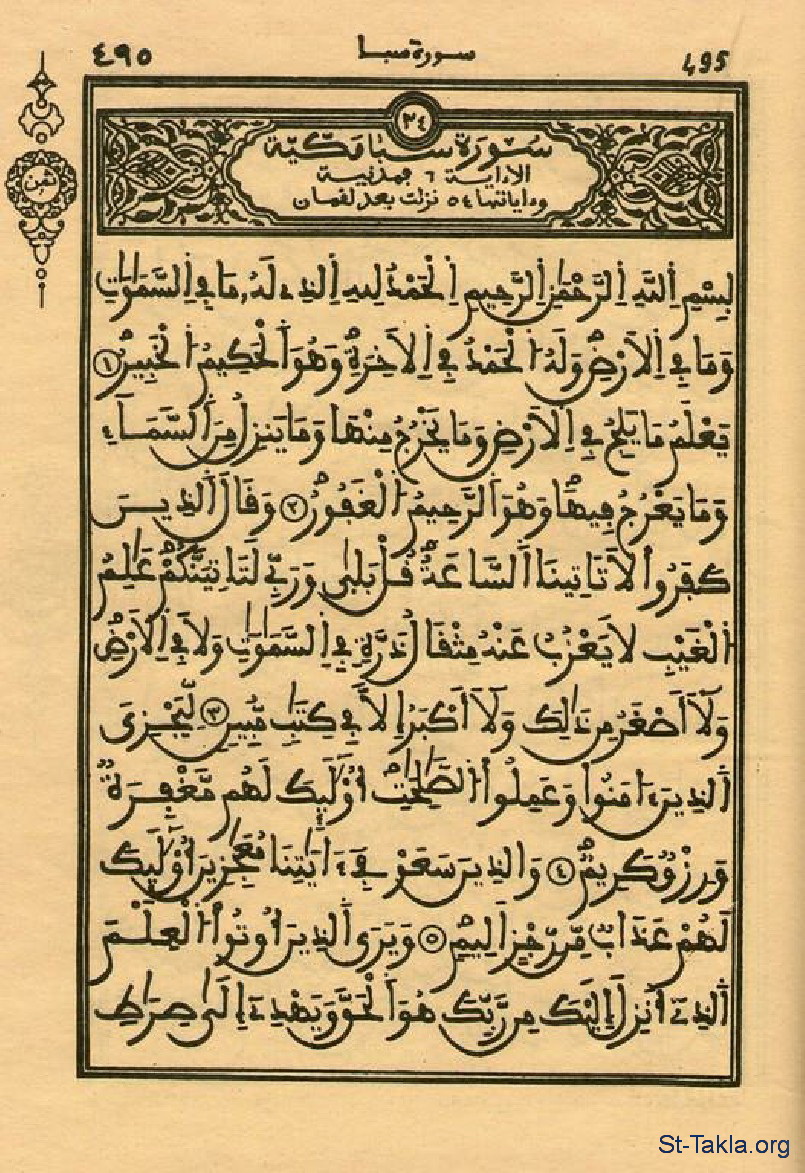 ٤٩٥ سورة سبا 495
٣٤
سُورَة سَبَإ مَكِّيَّة
الا اية ٦ فمدنية
وءاياتها ٥٤ نزلت بعد لقمان
ثمن
بِسْمِ اِ۬للَّهِ اِ۬لرَّحْمَٰنِ اِ۬لرَّحِيمِ اِ۬لْحَمْدُ لِلهِ اِ۬لذِے لَهُۥ مَا فِے اِ۬لسَّمَٰوَٰتِ
وَمَا فِے اِ۬لَارْضِ وَلَهُ اُ۬لْحَمْدُ فِے اِ۬لَاخِرَةِ وَهُوَ اَ۬لْحَكِيمُ اُ۬لْخَبِيرُ ١
يَعْلَمُ مَا يَلِجُ فِے اِ۬لَارْضِ وَمَا يَخْرُجُ مِنْهَا وَمَا يَنزِلُ مِنَ اَ۬لسَّمَآءِ
وَمَا يَعْرُجُ فِيهَا وَهُوَ اَ۬لرَّحِيمُ اُ۬لْغَفُورُ ٢ وَقَالَ اَ۬لذِينَ
كَفَرُوا۟ لَا تَاتِينَا اَ۬لسَّاعَةُ قُلْ بَلَىٰ وَرَبِّے لَتَاتِيَنَّكُمْ عَٰلِمُ
اُ۬لْغَيْبِ لَا يَعْزُبُ عَنْهُ مِثْقَالُ ذَرَّةٍ فِے اِ۬لسَّمَٰوَٰتِ وَلَا فِے اِ۬لَارْضِ
وَلَآ أَصْغَرُ مِن ذَٰلِكَ وَلَآ أَكْبَرُ إِلَّا فِے كِتَٰبٍ مُّبِينٍ ٣ لِّيَجْزِىَ
اَ۬لذِينَ ءَامَنُوا۟ وَعَمِلُوا۟ اُ۬لصَّٰلِحَٰتِ أُوْلَٰٓئِكَ لَهُم مَّغْفِرَةٌ
وَرِزْقٌ كَرِيمٌ ٤ وَالذِينَ سَعَوْ فِےٓ ءَايَٰتِنَا مُعَٰجِزِينَ أُوْلَٰٓئِكَ
لَهُمْ عَذَابٌ مِّن رِّجْزٍ اَلِيمٍ ٥ وَيَرَى اَ۬لذِينَ أُوتُوا۟ اُ۬لْعِلْمَ
اَ۬لذِےٓ أُنزِلَ إِلَيْكَ مِن رَّبِّكَ هُوَ اَ۬لْحَقَّ وَيَهْدِےٓ إِلَىٰ صِرَٰطِ
St-Takla.org